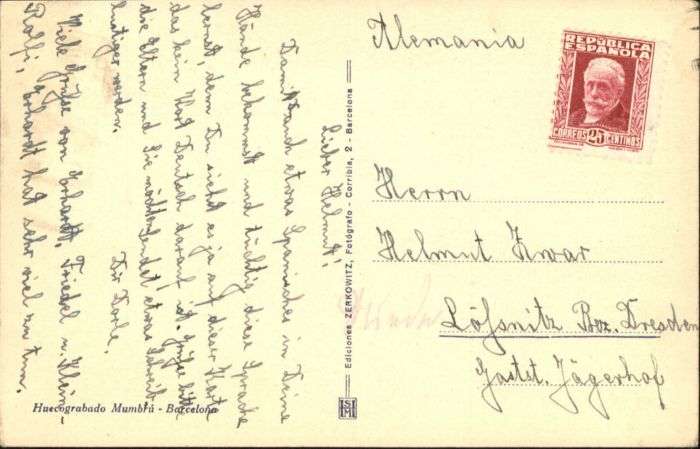 Lieber Helmut!
Damit Du auch etwas Spanisches in Deine
Hände bekommst und tüchtig diese Sprache
lernst, denn Du siehst es ja auf dieser Karte
das kein Wort Deutsch darauf ist. Grüße bitte
die Eltern und Sie möchten
etwas
lustiger werden.
Dir Dorle.
Viele Grüße von Erhardt, Friedel u. Klein-
Rolfi, Erhardt hat sehr viel zu tun.
Huecograbado Mumbrú - Barcelona
Ediciones ZERKOWITZ, Fotógrafo - Corribia, 2 - Barcelona
Alemania
REPUBLICA
ESPAÑOLA
CORREOS 25 CENTIMOS
Herrn
Helmut Zwar
Lößnitz Bez. Dresden
Gastst. Jägerhof